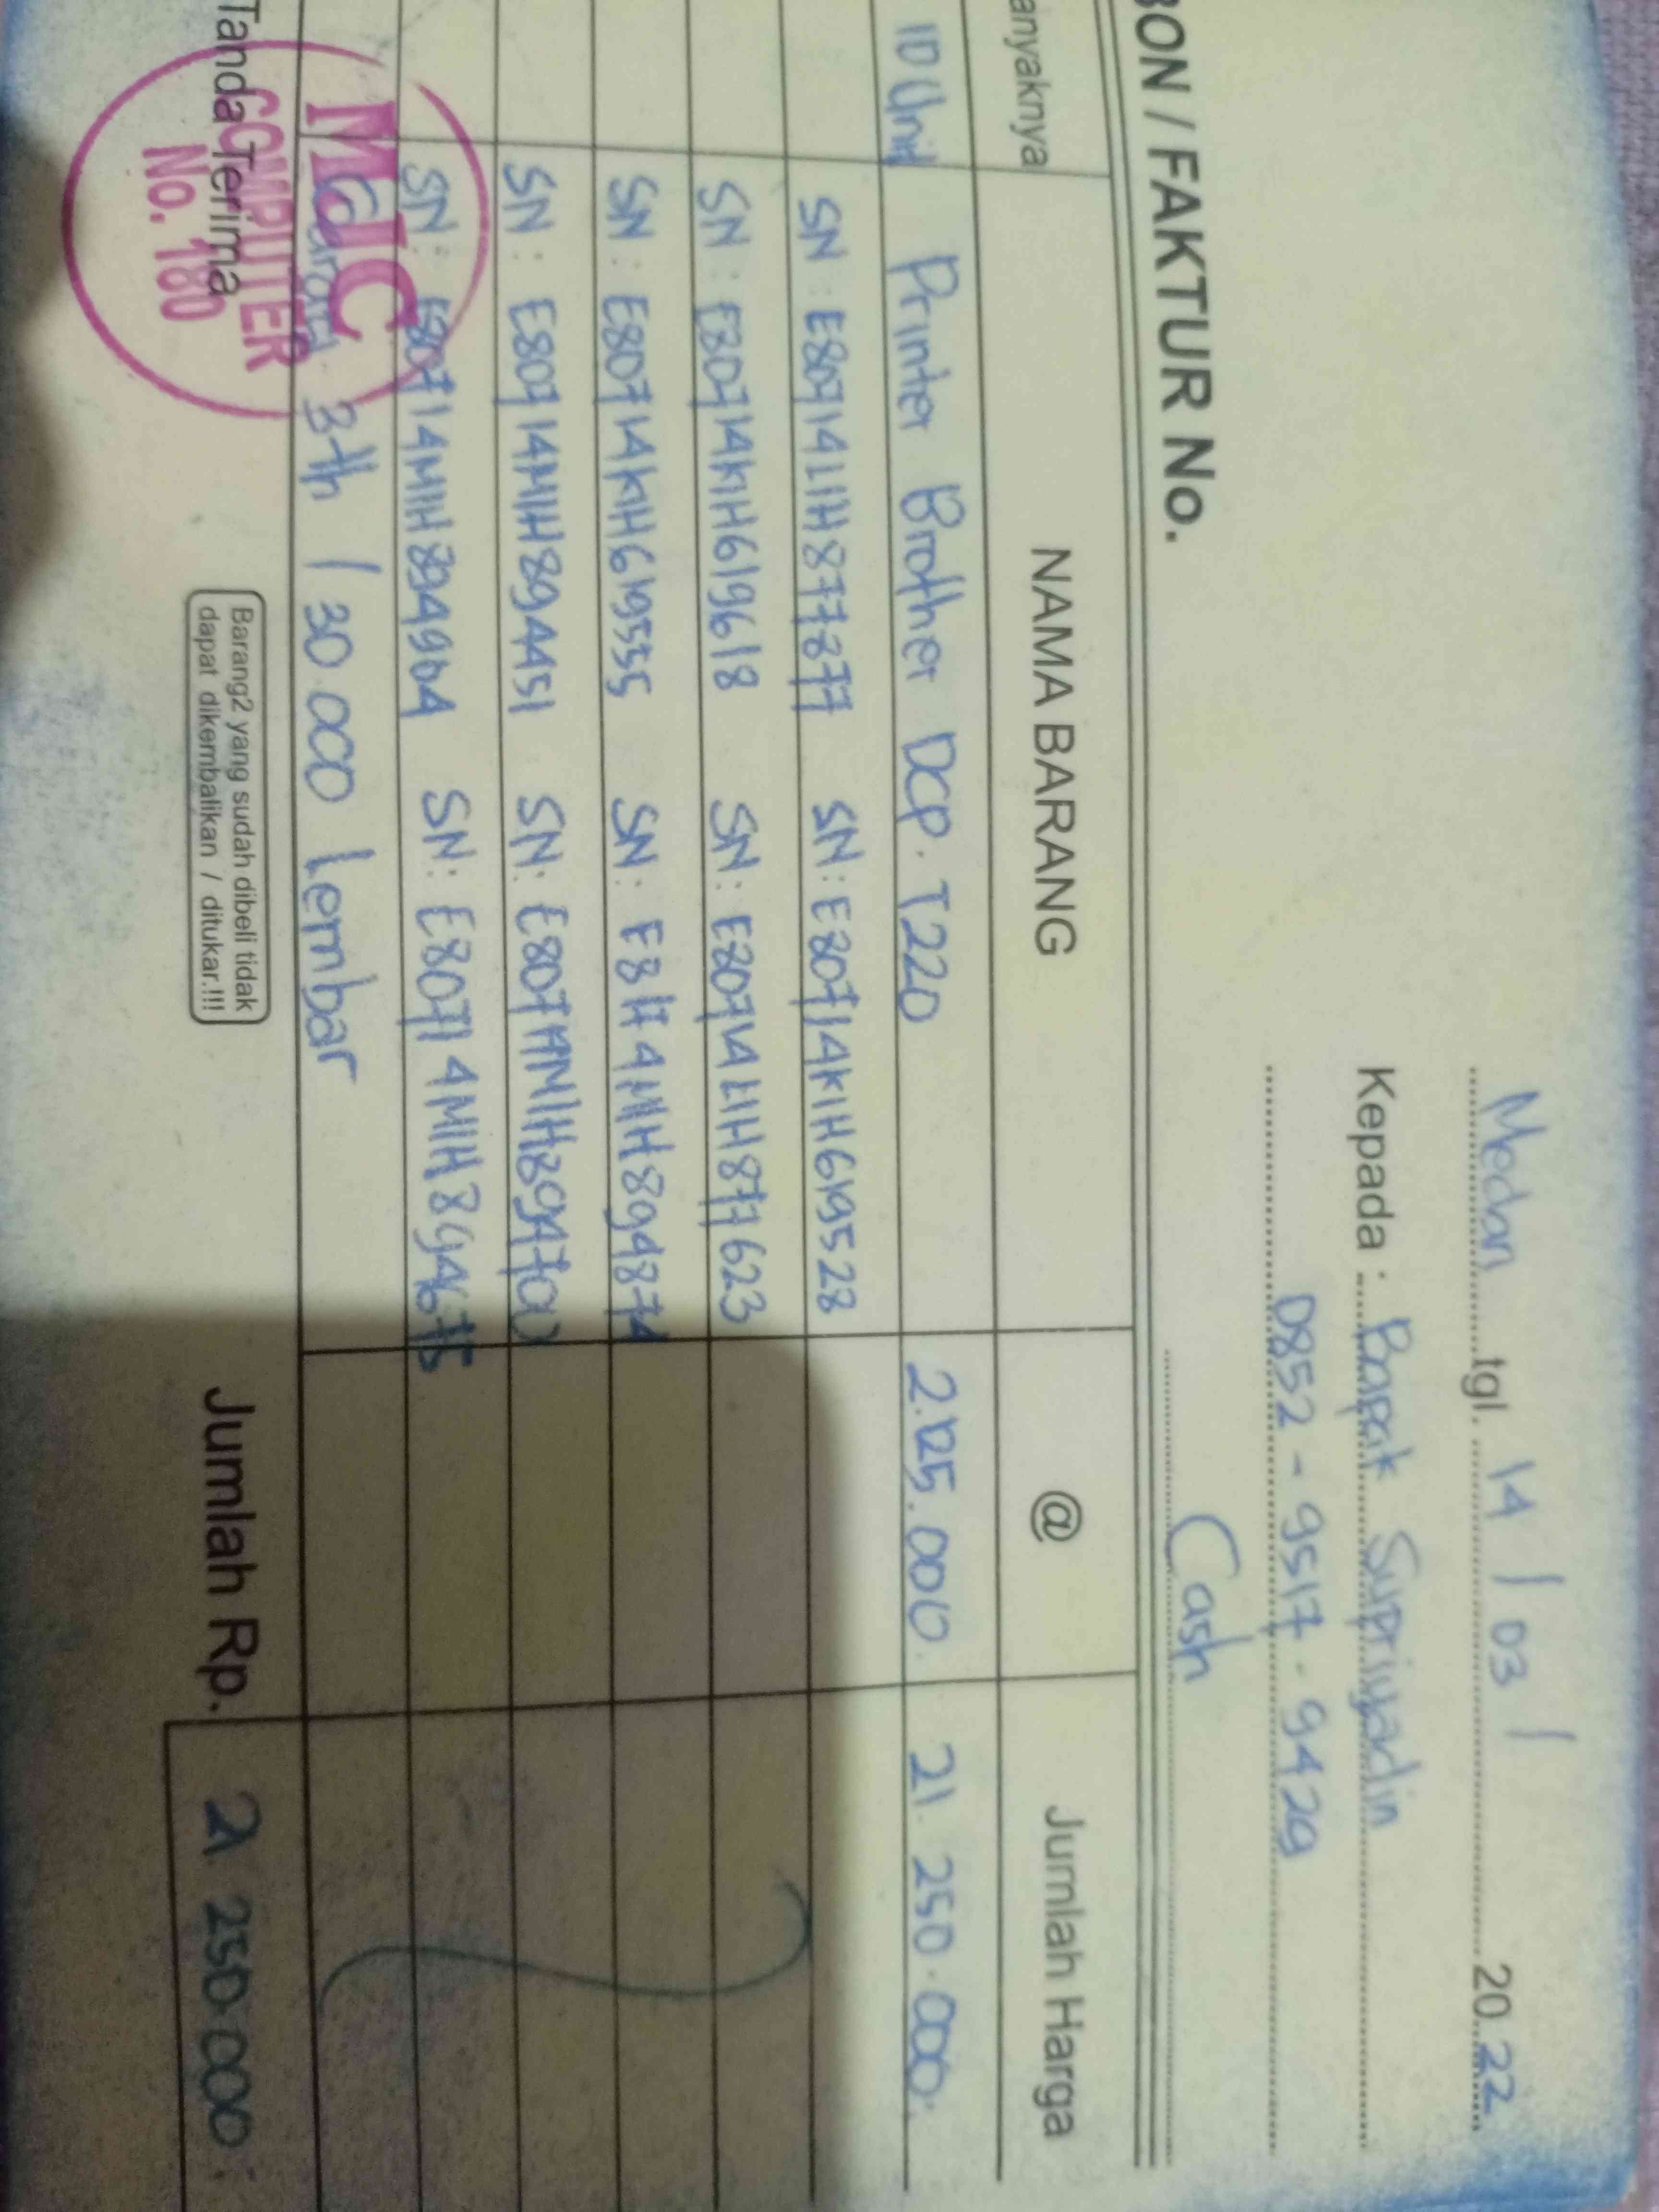 Medan tgl. 14 / 03 / 20 22
Kepada : Bapak Supriyadin
0852 - 9517 - 9429
Cash
BON / FAKTUR No.
anyaknya NAMA BARANG @ Jumlah Harga
10 Unit Printer Brother DCP. T220 2.125.000. 21.250.000.
SN : E80714L1H877877 SN : E80714K1H619528
SN : E80714K1H619618 SN : E80714L1H877623
SN : E80714K1H619555 SN :
SN : E80714M1H894451 SN : E80714M1H894700
SN : E80714M1H894904 SN : E80714M1H894675
Garansi 3 th / 30 000 lembar
Tanda Terima
MJC
COMPUTER
No. 180
Barang2 yang sudah dibeli tidak
dapat dikembalikan / ditukar.!!!
Jumlah Rp. 21 250.000.